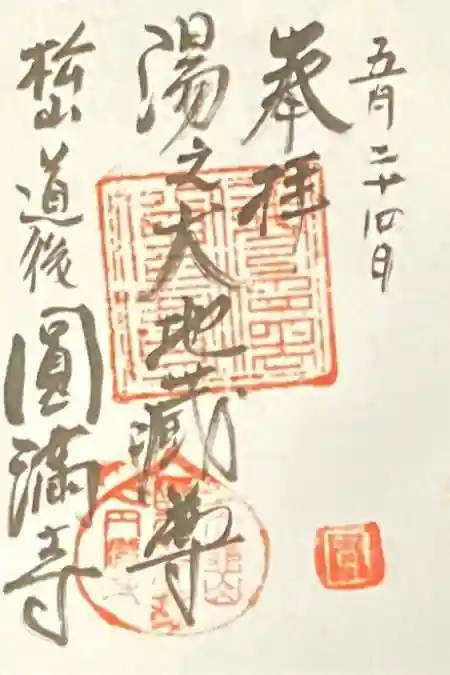 五月二十四日
奉拝
湯之大地蔵尊
松山道後圓満寺